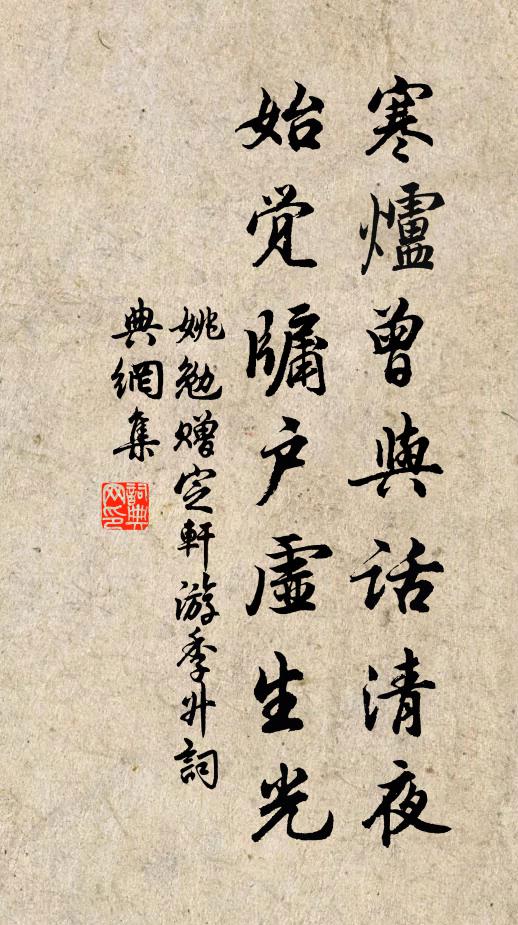 寒爐曾與話清夜
始覚牖户虛生光
姚勉赠定軒游季升詞
典網集
詞典
网印